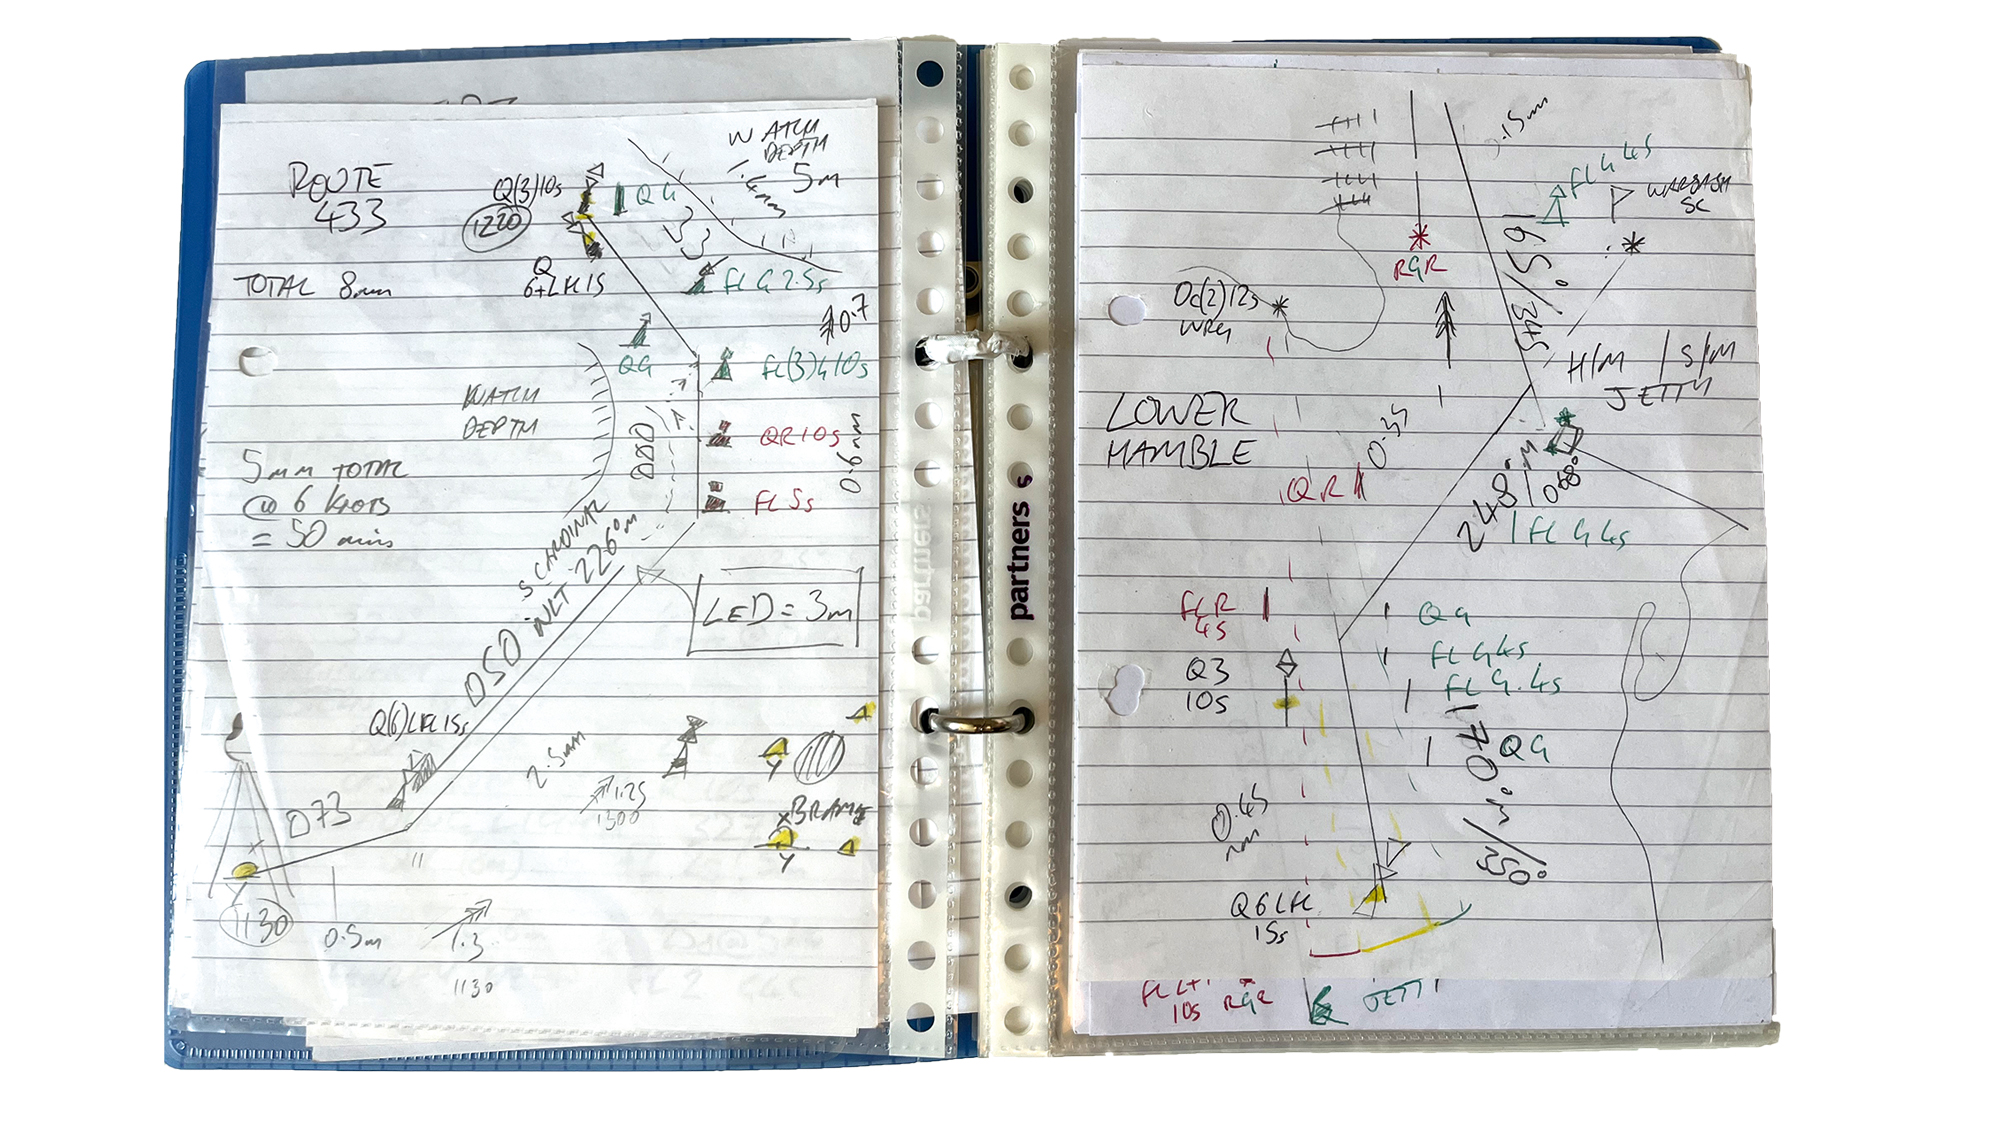 WATCH
DEPTH
5m
1.4nm
ROUTE
433
Q(3)10s
QG
1220
TOTAL 8nm
Q
6+LFL15
FL G 2.5s
0.7
QG
FL(3)G10s
WATCH
DEPTH
000
QR10s
0.6nm
5nm TOTAL
@ 6 KNOTS
= 50 mins
FL5s
S CARDINAL
NLT 226°m
050
LED = 3m
Q(6)LFL15s
2.5nm
1.25
1300
BRAMB
Y
Y
073
Y
1130
0.5m
1.3
1130
partners
partners
0.15nm
FL G 4s
WARSASH
SC
RGR
165°/345
Oc(2)12s
WRG
H/M / S/M
JETTY
LOWER
HAMBLE
0.35
QR
248°M
068°
FL G 4s
FLR
4s
QG
FL G 4s
Q3
10s
FL G.4s
QG
170°M/350
0.45
nm
Q6LFL
15s
10s RGR
JETTY